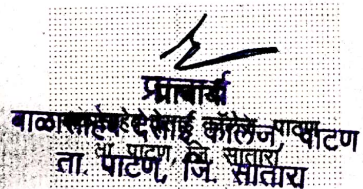 प्राचार्य
बाळासाहेब देसाई कॉलेज पाटण
ता. पाटण, जि. सातारा